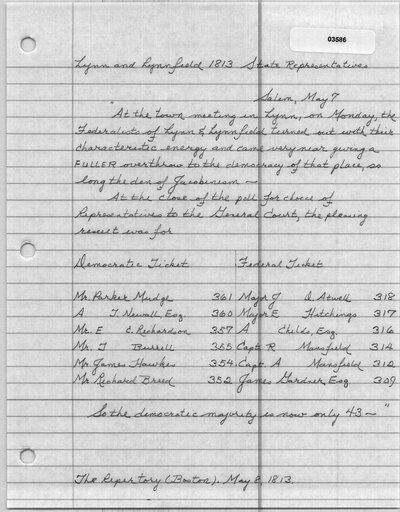 03586
Lynn and Lynnfield 1813 State Representatives
Salem, May 7
"At the town meeting in Lynn, on Monday, the
Federalists of Lynn & Lynnfield turned out with their
characteristic energy and came very near giving a
FULLER overthrow to the democracy of that place, so
long the den of Jacobinism —
At the close of the poll for choice of
Representatives to the General Court, the pleasing
result was for
Democratic Ticket Federal Ticket
Mr. Parker Mudge 361 Major J D. Atwell 318
A J Newall, Esq 360 Major E Hutchings 317
Mr. E C. Richardson 357 A Childs, Esq. 316
Mr. J Burrell 355 Capt. R Mansfield 314
Mr James Hawkes 354 Capt. A Mansfield 312
Mr Richard Breed 352 James Gardner, Esq 309
So the democratic majority is now only 43 — "
The Repertory (Boston). May 8, 1813.